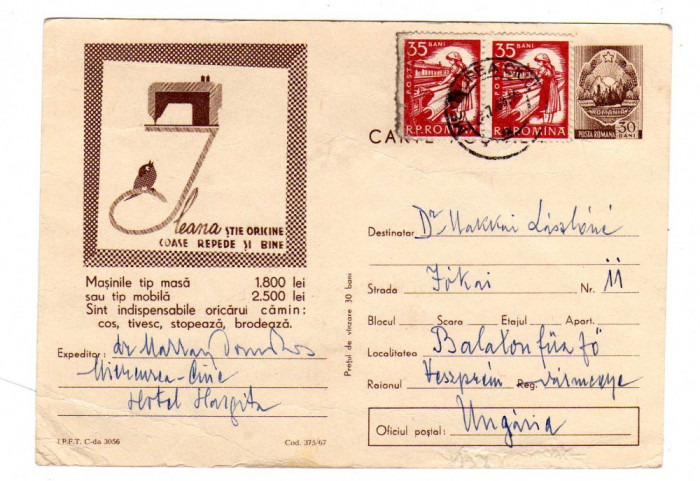 Ileana ȘTIE ORICINE
COASE REPEDE ȘI BINE
Mașinile tip masă 1.800 lei
sau tip mobilă 2.500 lei
Sînt indispensabile oricărui cămin:
cos, tivesc, stopează, brodează.
Expeditor: dr
Miercurea-Ciuc
Hotel Hargita
I.P.F.T. C-da 3056 Cod. 375/67
Prețul de vînzare 30 bani
35 BANI
POSTA
R.P.ROMINA
35 BANI
POSTA
R.P.ROMINA
ROMANIA
POSTA ROMANA 30 BANI
CARTE
Destinatar Dr Makkai Lászlóné
Strada Jókai Nr. 11
Blocul Scara Etajul Apart.
Localitatea Balatonfüred
Raionul Veszprém Reg. vármegye
Ungária
Oficiul poștal: